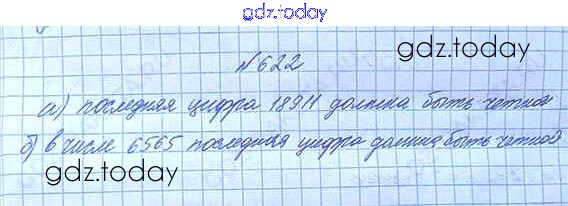 gdz.today
gdz.today
№622
а) последняя цифра 18911 должна быть четной
б) в числе 6565 последняя цифра должна быть четной
gdz.today